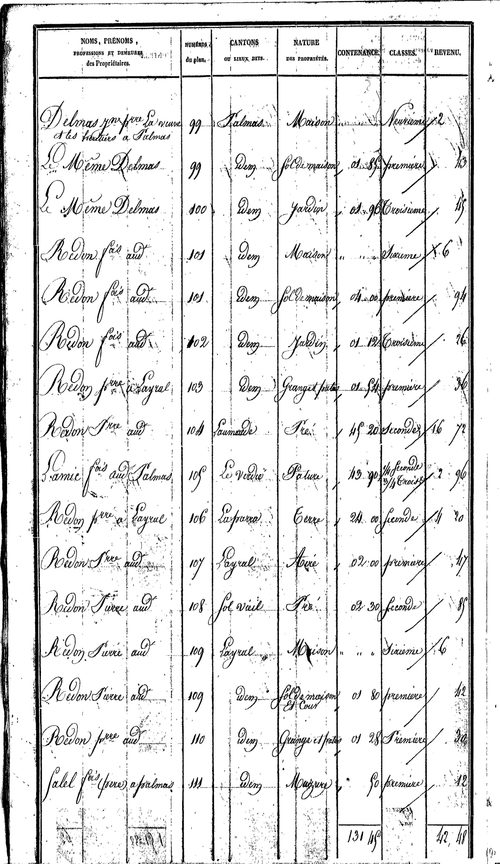 NOMS, PRÉNOMS, PROFESSIONS ET DEMEURES des Propriétaires. NUMÉROS du plan. CANTONS OU LIEUX DITS. NATURE DES PROPRIÉTÉS. CONTENANCE. CLASSES. REVENU.
Delmas pre La veuve 99 Palmas Maison Neuvieme 2
et les héritiers a Palmas
Le Même Delmas 99 idem Sol de maison 01 85 première 43
Le Même Delmas 100 idem Jardin 01 96 Troisieme 45
Redon fois aud 101 idem Maison " " " Sixieme 6
Redon fois aud 101 idem Sol de maison 04 00 premiere 94
Redon fois aud 102 idem Jardin 01 12 Troisième 26
Redon prre a Layral 103 idem Grange et patus 01 54 première 36
Redon Prre aud 104 Laumade Pré 45 20 Seconde 16 72
fois aud Palmas 105 Le Verdié Pature 43 90 1/4 Seconde 3/4 Troise 2 96
Redon prre a Layral 106 Laparra Terre 24 00 Seconde 4 20
Redon Prre aud 107 Layral 02 00 premiere 47
Redon Pierre aud 108 Sol Pré 02 30 Seconde 85
Redon Pierre aud 109 Layral Maison " " " Sixieme 6
Redon Pierre aud 109 idem Sol de maison 01 80 premiere 42
Et Cour
Redon prre aud 110 idem Grange et patus 01 28 Premiere 30
Salel fois (pere) a palmas 111 idem Mazure 50 premiere 12
131 45 42 48